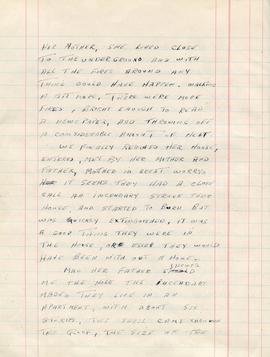 HER MOTHER, SHE LIVED CLOSE
TO THE UNDERGROUND AND WITH
ALL THE FIRES AROUND ANY
THING COULD HAVE HAPPEN. WALKING
A BIT MORE, THERE WERE MORE
FIRES, BRIGHT ENOUGH TO READ
A NEWSPAPER, AND THROWING OFF
A CONSIDERABLE AMOUNT OF HEAT.
WE FINALLY REACHED HER HOUSE,
ENTERED, MET BY HER MOTHER AND
FATHER, MOTHER IN GREAT WORRY.
IT SEEMS THEY HAD A CLOSE
CALL AN INCENDIARY STRUCK THEIR
HOUSE AND STARTED TO BURN BUT
WAS QUICKLY EXTINGUISHED, IT WAS
A GOOD THING THEY WERE IN
THE HOUSE, OR ELSE THEY WOULD
HAVE BEEN WITH OUT A HOME.
HER FATHER SHOWED
ME THE HOLE THE INCENDIARY
MADE, THEY LIVE IN AN
APARTMENT, WITH ABOUT SIX
STORIES, THIS SHELL CAME THROUGH
THE ROOF, THE SIZE OF THE